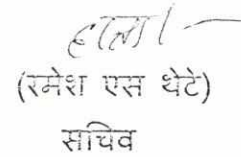 (रमेश एस थेटे)
सचिव